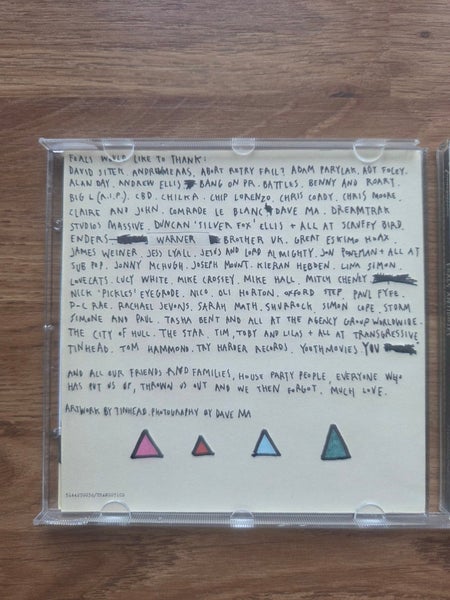 FOALS WOULD LIKE TO THANK:
DAVID SITEK ANDREW MEARS. ABORT RETRY FAIL? ADAM PARYLAK. ADY FOLEY.
ALAN DAY. ANDREW ELLIS BANG ON PR. BATTLES. BENNY AND RORY.
BIG L (R.I.P.). CBD. CHILKA. CHIP LORENZO. CHRIS CORDY. CHRIS MOORE.
CLAIRE AND JOHN. COMRADE LE BLANC DAVE MA. DREAMTRAK
STUDIOS MASSIVE. DUNCAN 'SILVER FOX' ELLIS + ALL AT SCRUFFY BIRD.
ENDERS WARNER BROTHER UK. GREAT ESKIMO HOAX.
JAMES WEINER. JESS LYALL. JESUS AND LORD ALMIGHTY. JON PONEMAN + ALL AT
SUB POP. JONNY MCHUGH. JOSEPH MOUNT. KIERAN HEBDEN. LINA SIMON.
LOVECATS. LUCY WHITE. MIKE CROSSEY. MIKE HALL. MITCH CHENEY
NICK 'PICKLES' EYEGRODE. NICO. OLI HORTON. OXFORD STEP. PAUL FYFE.
P-C RAE. RACHAEL JEVONS. SARAH MATH. SHURROCK. SIMON COPE. STORM
SIMONE AND PAUL. TASHA BENT AND ALL AT THE AGENCY GROUP WORLDWIDE.
THE CITY OF HULL. THE STAR. TIM, TOBY AND LILAS + ALL AT TRANSGRESSIVE
TINHEAD. TOM HAMMOND. TRY HARDER RECORDS. YOUTHMOVIES. YOU
AND ALL OUR FRIENDS AND FAMILIES, HOUSE PARTY PEOPLE, EVERYONE WHO
HAS PUT US UP, THROWN US OUT AND WE THEN FORGOT. MUCH LOVE.
ARTWORK BY TINHEAD. PHOTOGRAPHY BY DAVE MA